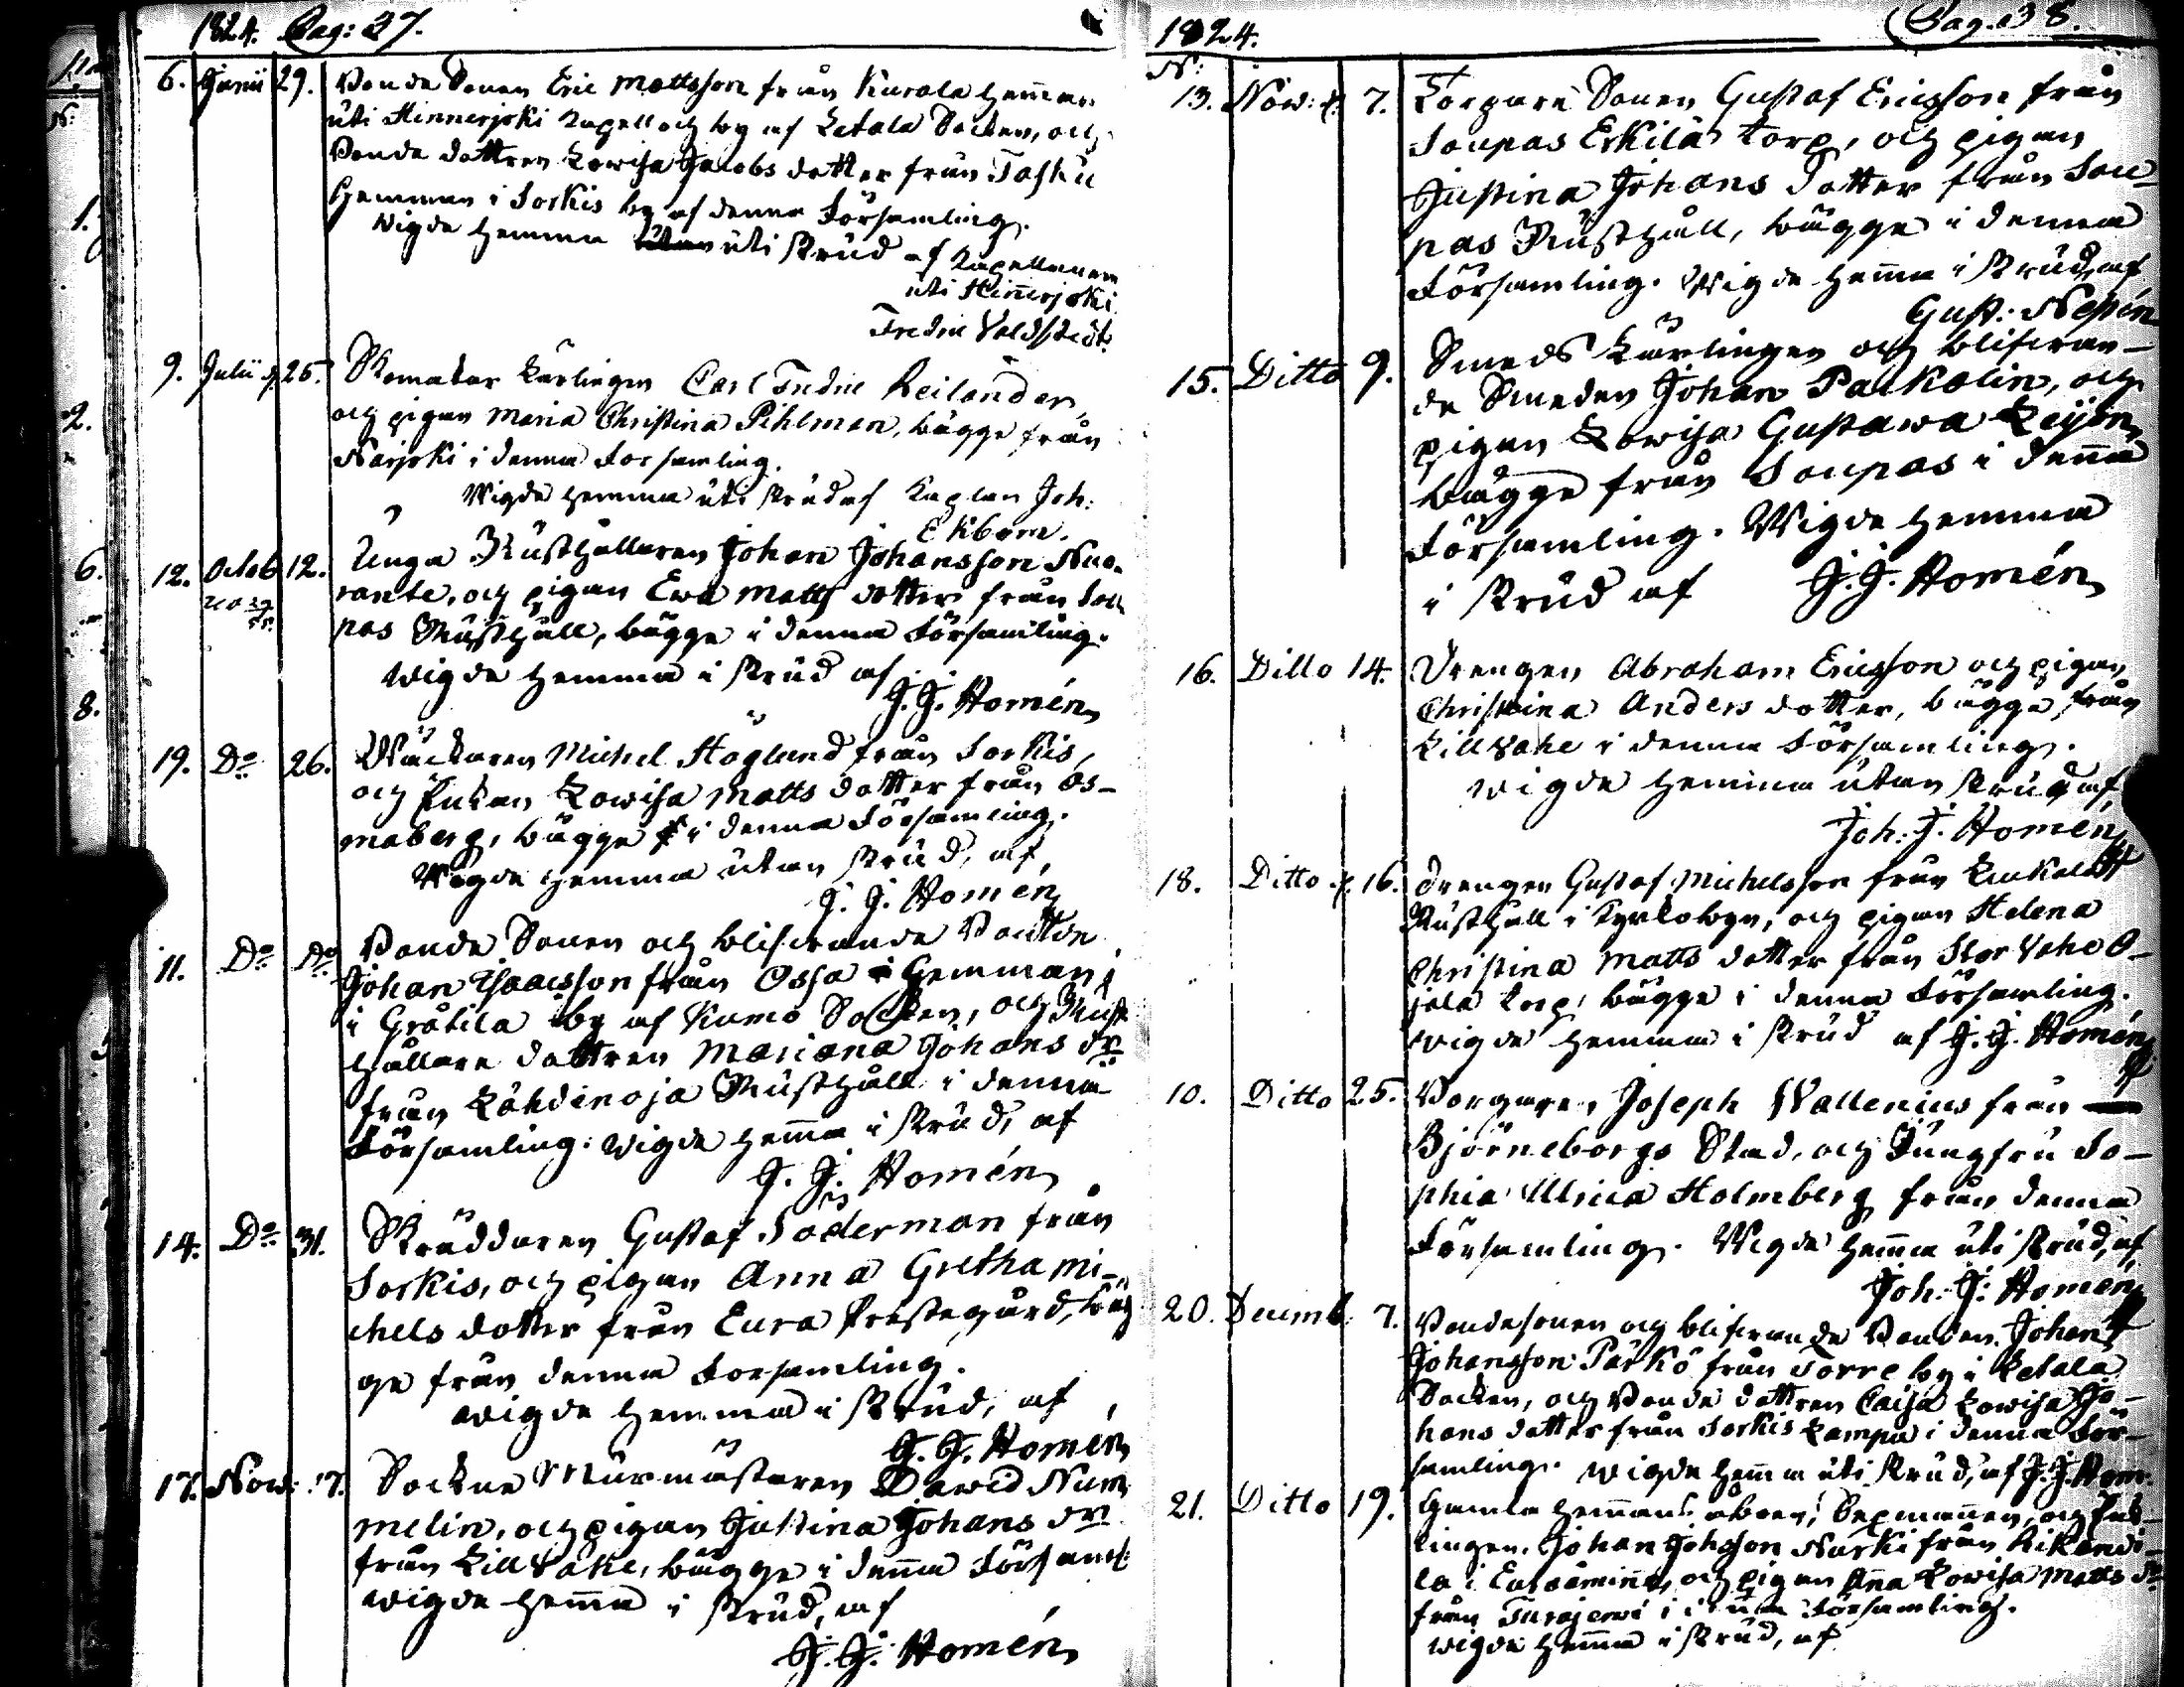 1824. Pag: 37.
6. Junii 29. Bonde Sonen Eric Mattsson från Kurala hemman
uti Hinnerjoki Kapell och by af Letala Socken, och
Bonde dottren Lowisa Jacobs dotter från Tasku
hemman i Sorkis by af denna Församling.
Wigde hemma uti skrud af Kapellanen
uti Hinnerjoki
Fredric Valdstedt.
9. Julii d. 25. Skomakar Lärlingen Carl Fredric Reilander,
och pigan Maria Christina Pihlman, bägge från
Narjoki i denna Församling.
Wigde hemma uti skrud af Kaplan Joh:
Ekbom.
12. Octob 12. Unga Rusthållaren Johan Johansson Nuo-
rante, och pigan Ewa Matts dotter från Sou
pas Rusthåll, bägge i denna Församling.
Wigde hemma i skrud af
J. J. Homén
19. Do 26. Wäcktaren Michel Höglund från Sorkis,
och Enkan Lowisa Matts dotter från Os-
maberg, bägge i denna Församling.
Wigde hemma utan skrud, af
J. J. Homén
11. Do Do Bonde Sonen och blifwande Bonden
Johan Isaacsson från Ossa Hemman
i Gråtila by af Kumo Socken, och Rust
hållare dottren Mariana Johans dr
från Lähdenoja Rusthåll i denna
Församling. Wigde hemma i skrud, af
J. J. Homén
14. Do 31. Skräddaren Gustaf Söderman från
Sorkis, och pigan Anna Gretha Mi-
chels dotter från Eura Prestegård, bäg
ge från denna Församling.
Wigde hemma i skrud, af
J. J. Homén
17. Now: 7. Sockne Murmästaren Dawid Num
melin, och pigan Justina Johans dr
från Lill Vahe, bägge i denna Församl:
Wigde hemma i skrud, af
J. J. Homén
1824. Pag. 38.
N:
13. Now: d. 7. Torpare Sonen Gustaf Ericsson från
Soupas Erkilä torp, och pigan
Justina Johans dotter från Sou-
pas Rusthåll, bägge i denna
Församling. Wigde hemma i skrud, af
Gust: Nestén
15. Ditto 9. Smeds Lärlingen och blifwan-
de Smeden Johan Packalin, och
pigan Lowisa Gustawa Leijon,
bägge från Soupas i denna
Församling. Wigde hemma
i skrud af J. J. Homén
16. Ditto 14. Drengen Abraham Ericsson och pigan
Christina Anders dotter, bägge från
Lill Vahe i denna Församling.
Wigde hemma utan skrud af
Joh: J. Homén
18. Ditto d. 16. Drengen Gustaf Michelsson från
Rusthåll i Kyrkobyn, och pigan Helena
Christina Matts dotter från Stor Vahe O-
jala torp, bägge i denna Församling.
Wigde hemma i skrud af J. J. Homén
10. Ditto 25. Borgaren Joseph Wallenius från
Björneborgs Stad, och Jungfru So-
phia Ulrica Holmberg från denna
Församling. Wigde hemma uti skrud, af
Joh: J: Homén
20. Decemb. 7. Bondesonen och blifwande Bonden Johan
Johansson Pärkö från Torre by i Letala
Socken, och Bonde dottren Caisa Lowisa Jo-
hans dotter från Sorkis Lampu i denna För-
samling. Wigde hemma uti skrud, af J. J. Hom:
21. Ditto 19. Gamla hemmans åboen, Sexmannen, och Enk-
lingen, Johan Johsson Nurki från
la i Euraåminne, och pigan Anna Lowisa Matts dr
från Turajerwi i denna Församling.
Wigde hemma i skrud, af